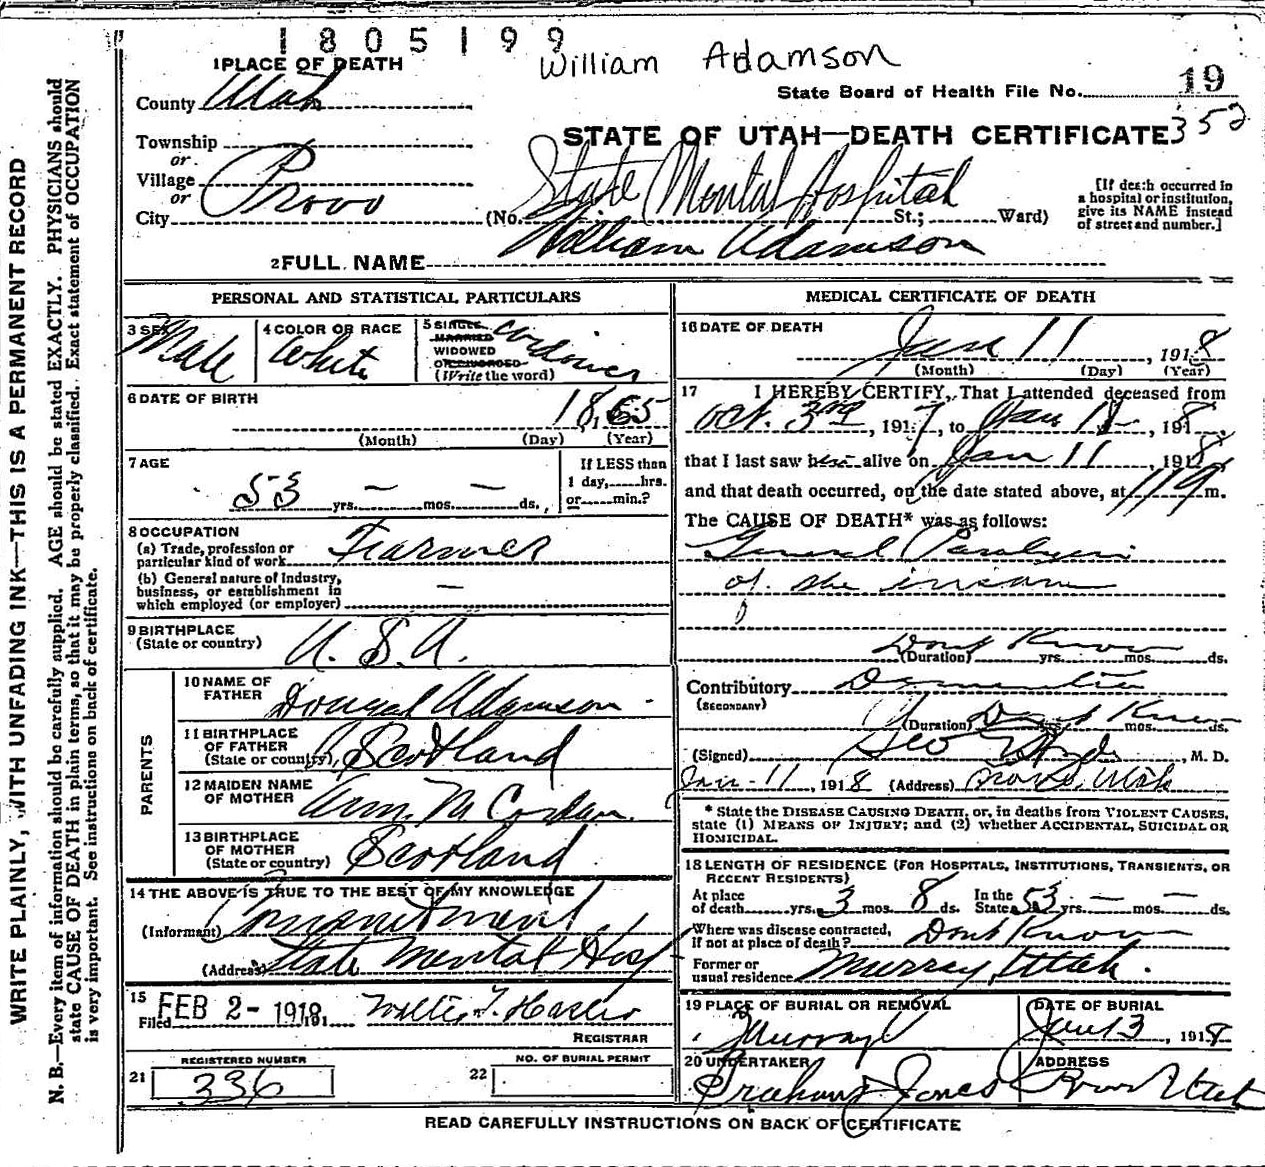 1805199
William Adamson
1 PLACE OF DEATH
19
County Utah
State Board of Health File No.
352
Township
STATE OF UTAH—DEATH CERTIFICATE
or
Village
or
City Provo
(No. State Mental Hospital St.; Ward)
[If death occurred in
a hospital or institution,
give its NAME instead
of street and number.]
2 FULL NAME William Adamson
PERSONAL AND STATISTICAL PARTICULARS
3 SEX Male
4 COLOR OR RACE White
5 SINGLE
MARRIED
WIDOWED
OR DIVORCED
(Write the word)
6 DATE OF BIRTH
1865
(Month) (Day) (Year)
7 AGE
53 yrs. — mos. — ds.
If LESS than
1 day, hrs.
or min.?
8 OCCUPATION
(a) Trade, profession or
particular kind of work Farmer
(b) General nature of Industry,
business, or establishment in
which employed (or employer) —
9 BIRTHPLACE
(State or country) U.S.A.
PARENTS
10 NAME OF
FATHER Dougal Adamson
11 BIRTHPLACE
OF FATHER
(State or country) Scotland
12 MAIDEN NAME
OF MOTHER Ann
13 BIRTHPLACE
OF MOTHER
(State or country) Scotland
14 THE ABOVE IS TRUE TO THE BEST OF MY KNOWLEDGE
(Informant) Commitment
(Address) State Mental Hosp
15
Filed FEB 2 - 1918 191
REGISTRAR
REGISTERED NUMBER
21 336
NO. OF BURIAL PERMIT
22
MEDICAL CERTIFICATE OF DEATH
16 DATE OF DEATH
Jan 11, 1918
(Month) (Day) (Year)
17 I HEREBY CERTIFY, That I attended deceased from
Oct. 3rd, 1917, to Jan 11, 1918,
that I last saw him alive on Jan 11, 1918
and that death occurred, on the date stated above, at m.
The CAUSE OF DEATH* was as follows:
General Paralysis
of the insane
Dont Know
(Duration) yrs. mos. ds.
Contributory Dementia
(SECONDARY)
(Duration) Dont Know yrs. mos. ds.
(Signed) Geo , M. D.
Jan - 11, 1918 (Address) Provo, Utah
* State the DISEASE CAUSING DEATH, or, in deaths from VIOLENT CAUSES,
state (1) MEANS OF INJURY; and (2) whether ACCIDENTAL, SUICIDAL OR
HOMICIDAL.
18 LENGTH OF RESIDENCE (FOR HOSPITALS, INSTITUTIONS, TRANSIENTS, OR
RECENT RESIDENTS)
At place In the
of death yrs. 3 mos. 8 ds. State 53 yrs. — mos. — ds.
Where was disease contracted,
if not at place of death? Dont Know
Former or
usual residence Murray, Utah.
19 PLACE OF BURIAL OR REMOVAL
Murray
DATE OF BURIAL
Jan 13, 1918
20 UNDERTAKER
Graham Jones
ADDRESS
Provo Utah
READ CAREFULLY INSTRUCTIONS ON BACK OF CERTIFICATE
WRITE PLAINLY, WITH UNFADING INK—THIS IS A PERMANENT RECORD
N. B.—Every item of information should be carefully supplied. AGE should be stated EXACTLY. PHYSICIANS should
state CAUSE OF DEATH in plain terms, so that it may be properly classified. Exact statement of OCCUPATION
is very important. See instructions on back of certificate.